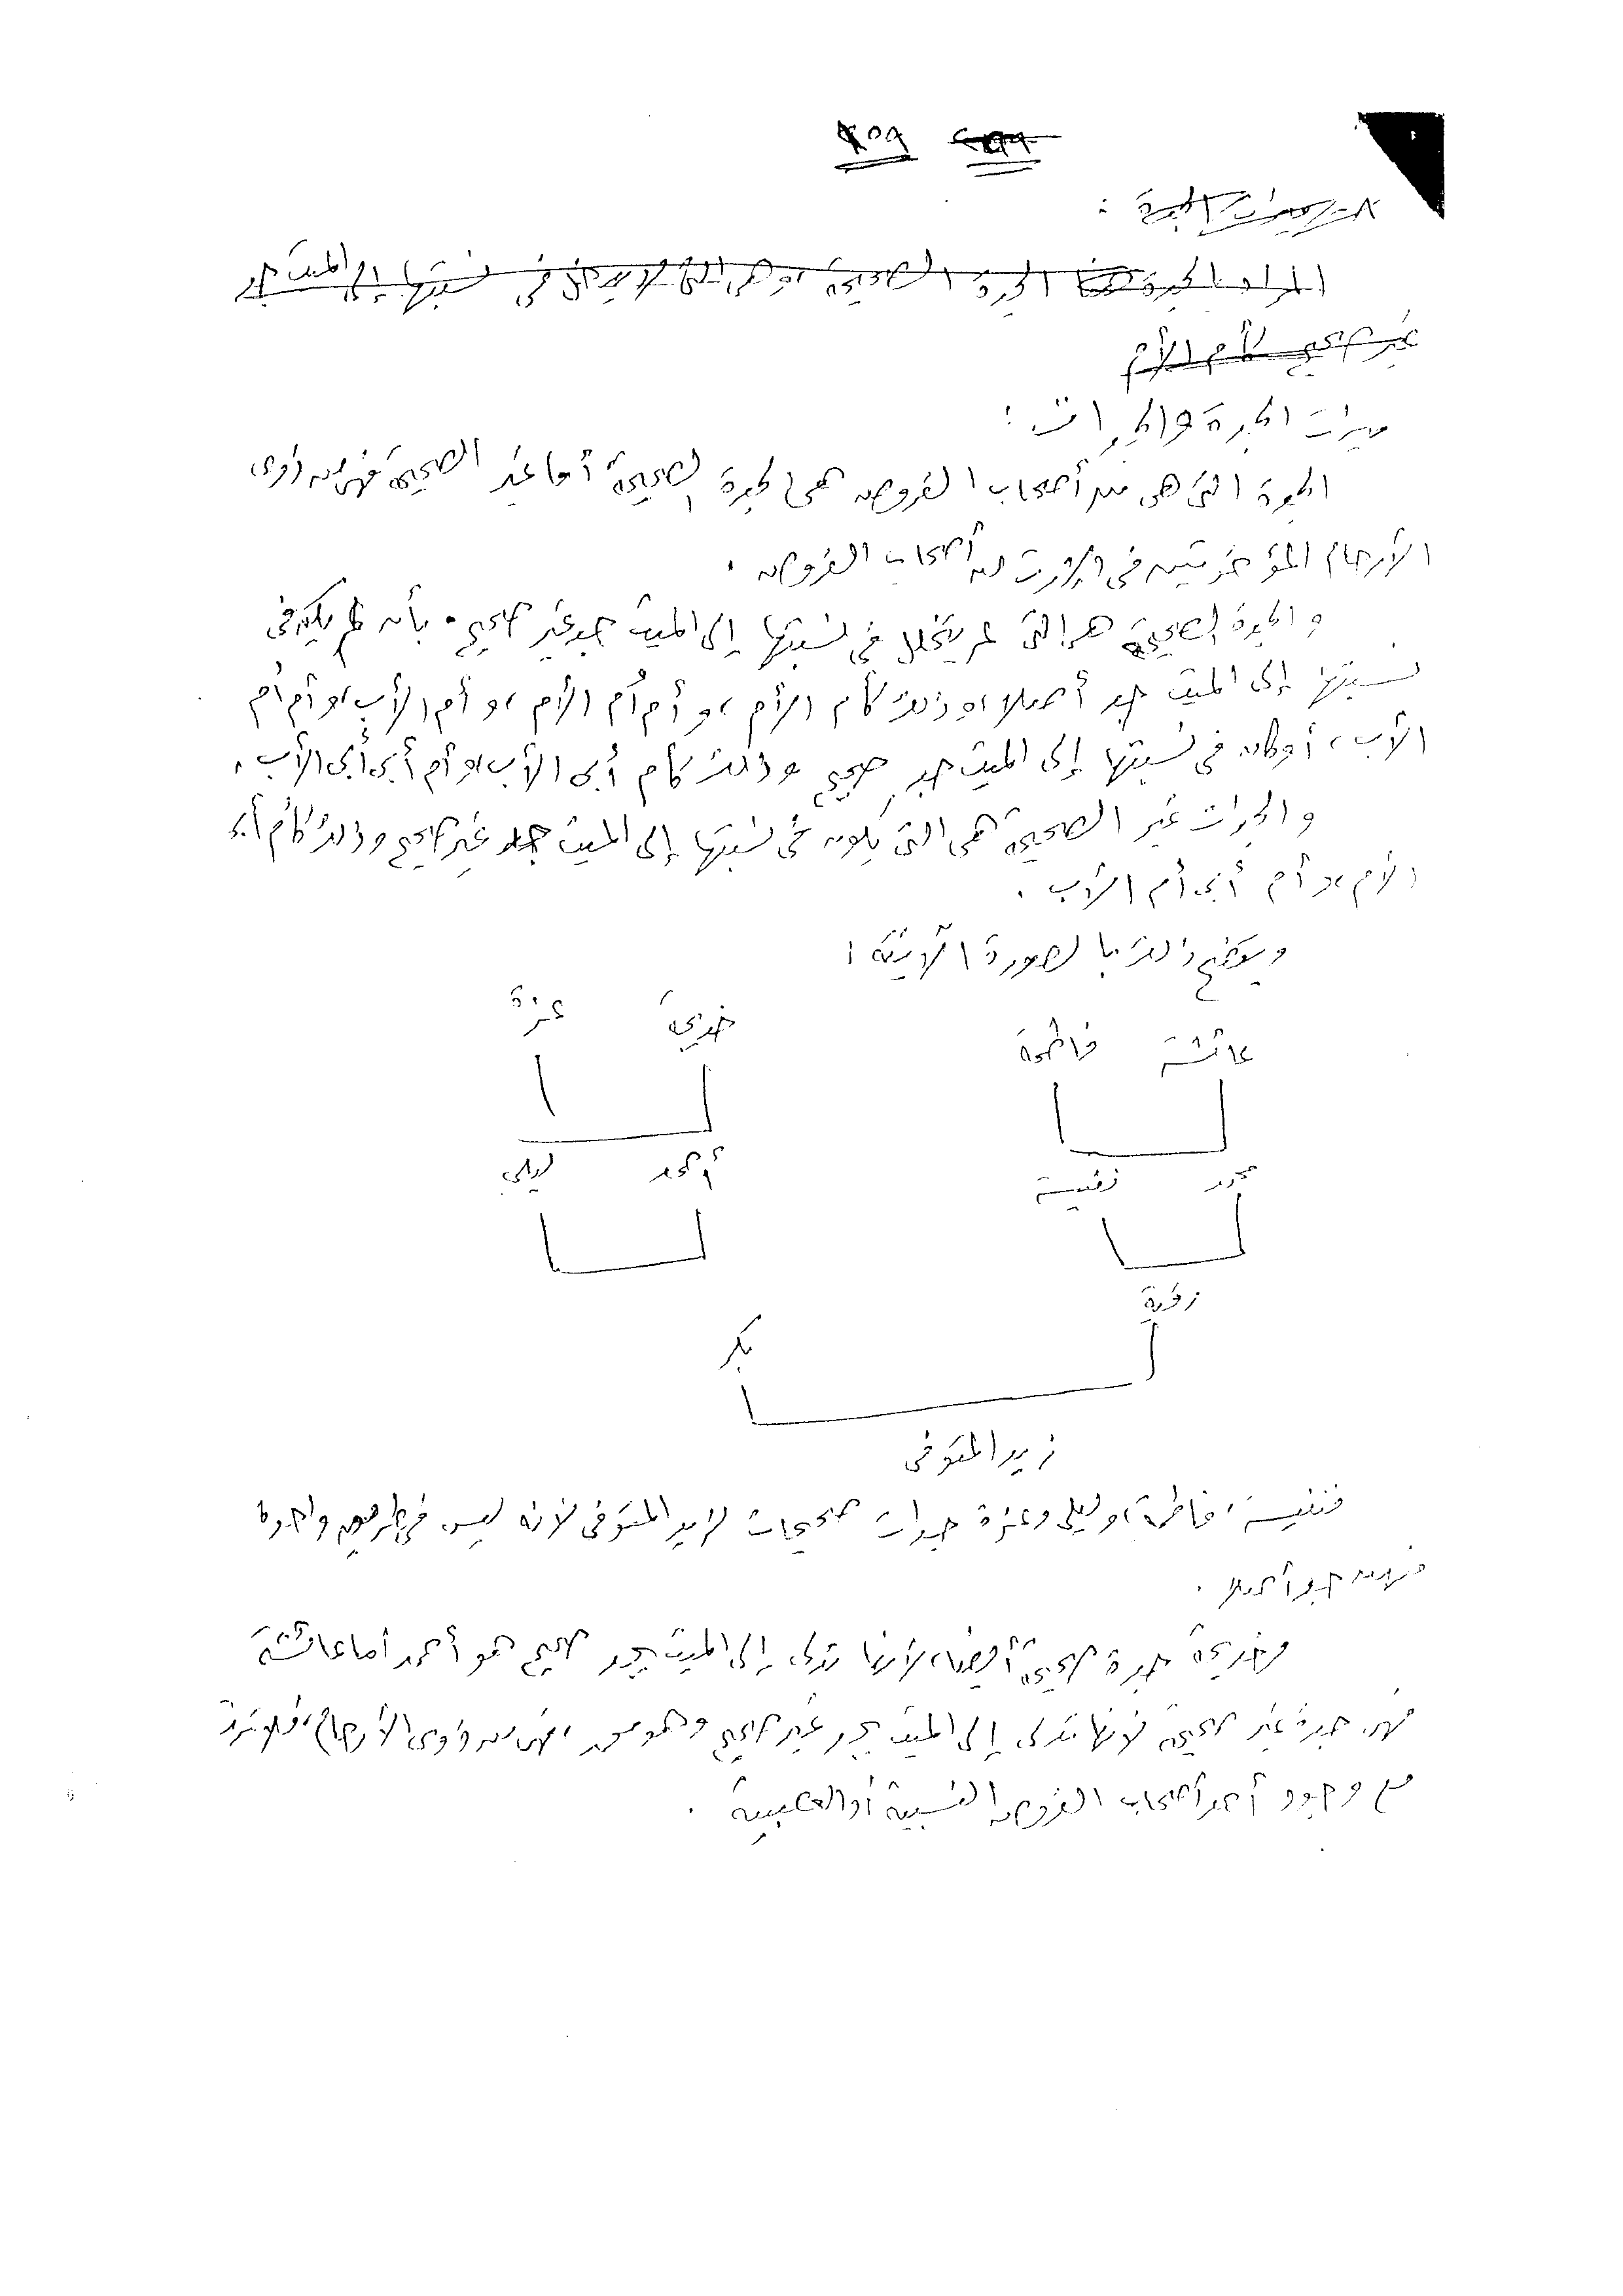 المراد بالجدة هنا الجدة الصحيحة وهى التى لا يدخل فى نسبتها إلى الميت جد
غير صحيح كأم الأم
ميراث الجدة والجدات :
الجدة التى هى من أصحاب الفروض هى الجدة الصحيحة أما غير الصحيحة فهى من ذوى
الأرحام المؤخرين فى الإرث عن أصحاب الفروض .
والجدة الصحيحة هى التى لم يتخلل فى نسبتها إلى الميت جد غير صحيح . بأن لم يكن فى
نسبتها إلى الميت جد أصلا، وذلك كأم الأم ، وأم أم الأم ، وأم الأب، وأم أم
الأب ، أو كان فى نسبتها إلى الميت جد صحيح وذلك كأم أبى الأب، وأم أبى أبى الأب .
والجدات غير الصحيحة هى التى يكون فى نسبتها إلى الميت جد غير صحيح وذلك كأم أبى
الأم ، وأم أبى أم الأب .
ويتضح ذلك بالصورة الآتية :
عائشة فاطمة خديجة عزة
محمد نفيسة أحمد ليلى
رقية
بكر
زيد المتوفى
فنفيسة ، فاطمة، وليلى وعزة جدات صحيحات لزيد المتوفى لأنه ليس فى طريق واحدة
منهن جد أصلا .
وخديجة جدة صحيحة أيضا، لأنها تدلى إلى الميت بجد صحيح هو أحمد أما عائشة
فهى جدة غير صحيحة لأنها تدلى إلى الميت بجد غير صحيح وهو محمد ، فهى من ذوى الأرحام، فلا ترث
مع وجود أحد أصحاب الفروض النسبية أو العصبية .